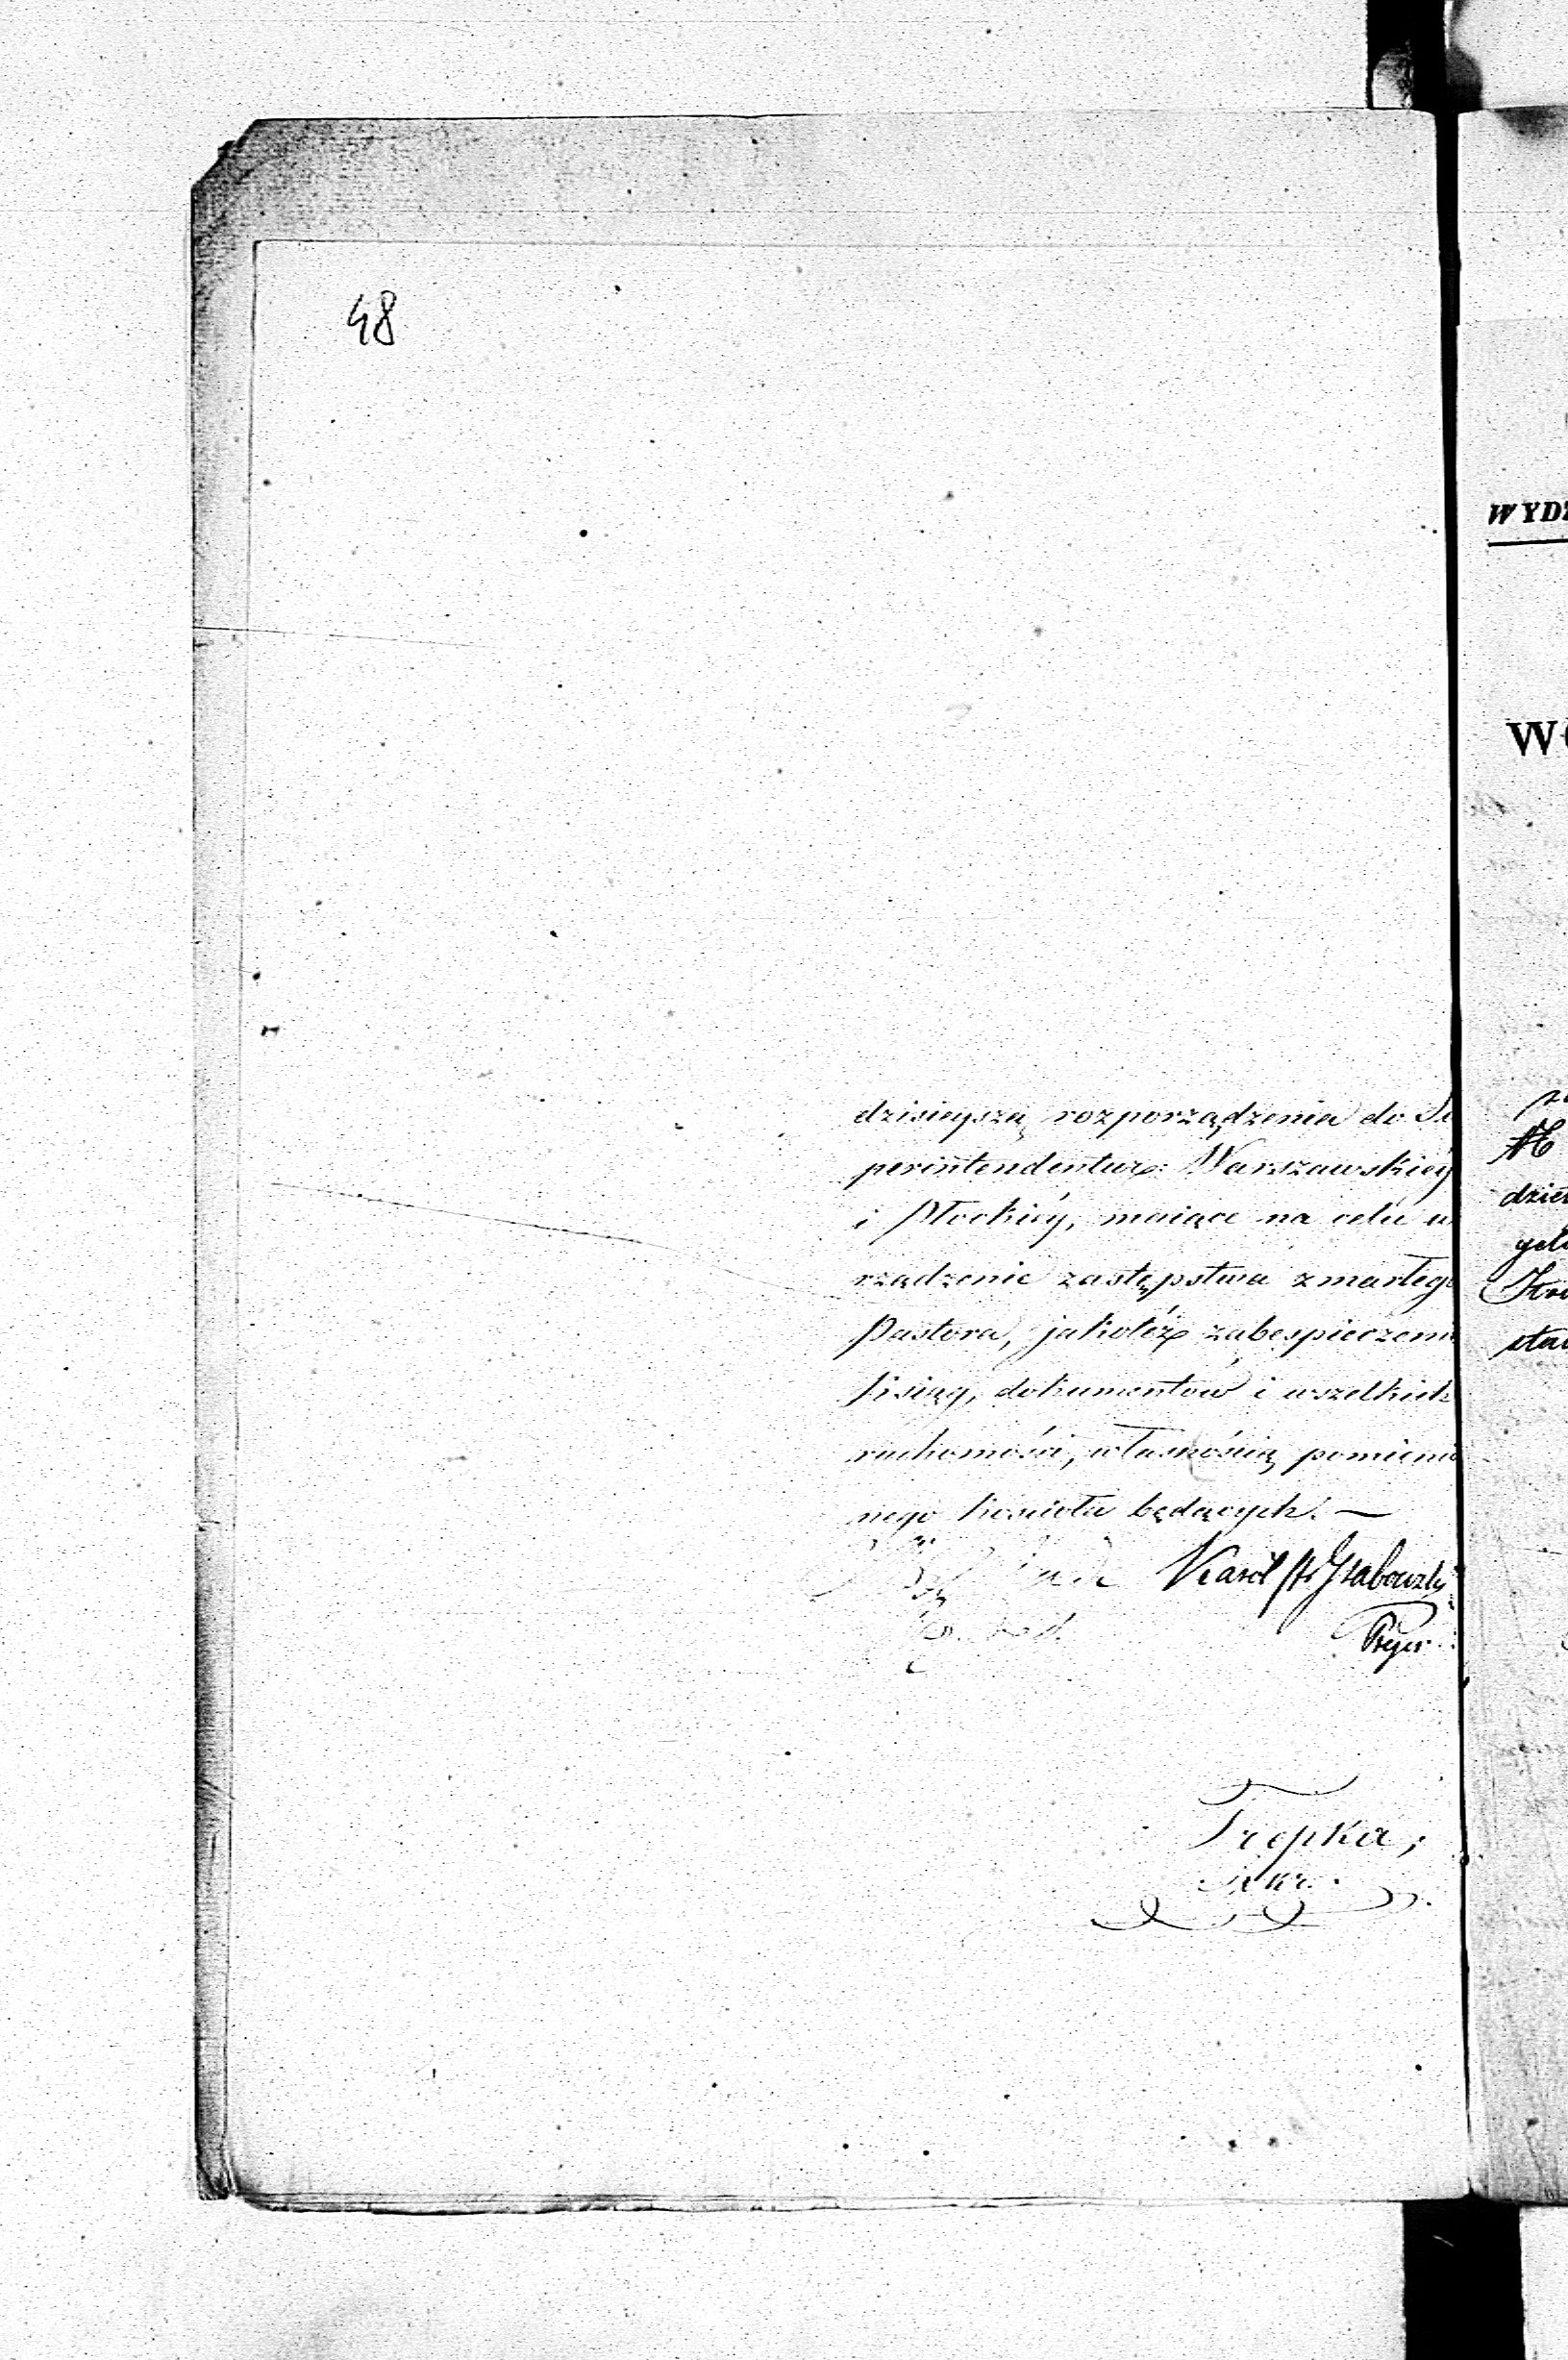 48
dzisieyszą rozporządzenia do Su
perintendentur: Warszawskiéy
i Płockiéy, maiące na celu u
rządzenie zastępstwa zmarłego
Pastora, jakotéż zabespieczenie
ksiąg, dokumentów i wszelkich
ruchomości, własnością pomienio
nego kościoła będących. —
Karól Grabowski
Trepka,
Sekr.
WYDZ
WO
dzie